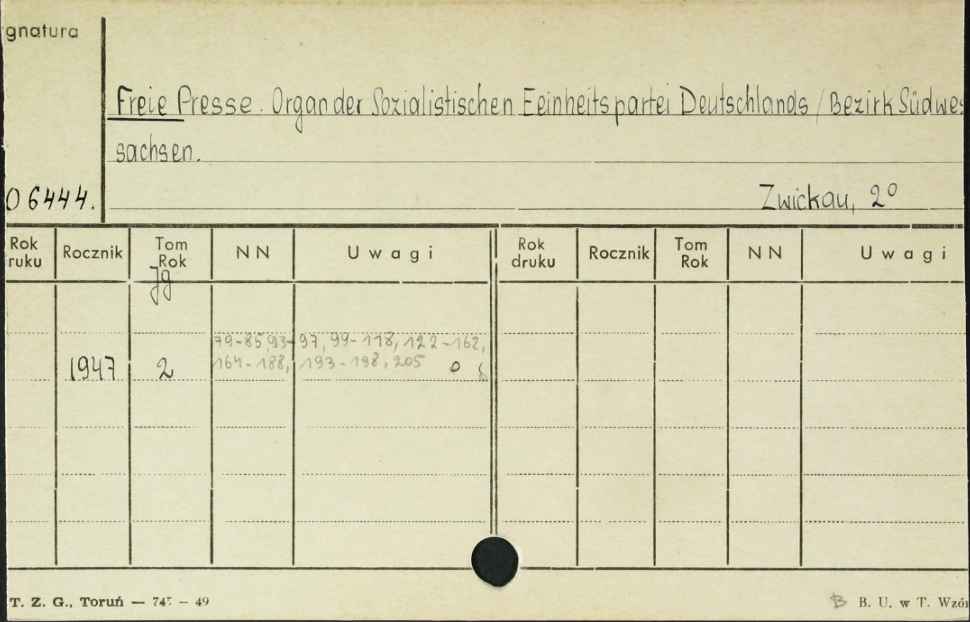 gnatura
Freie Presse. Organ der Sozialistischen Eeinheitspartei Deutschlands / Bezirk Südwes
sachsen.
06444.
Zwickau, 2°
Rok ruku Rocznik Tom Rok NN Uwagi Rok druku Rocznik Tom Rok NN Uwagi
Jg
79-85 93-97, 99-118, 122-162,
1947 2 164-188, 193-198, 205 0
T. Z. G., Toruń — 745 — 49
B B. U. w T. Wzór